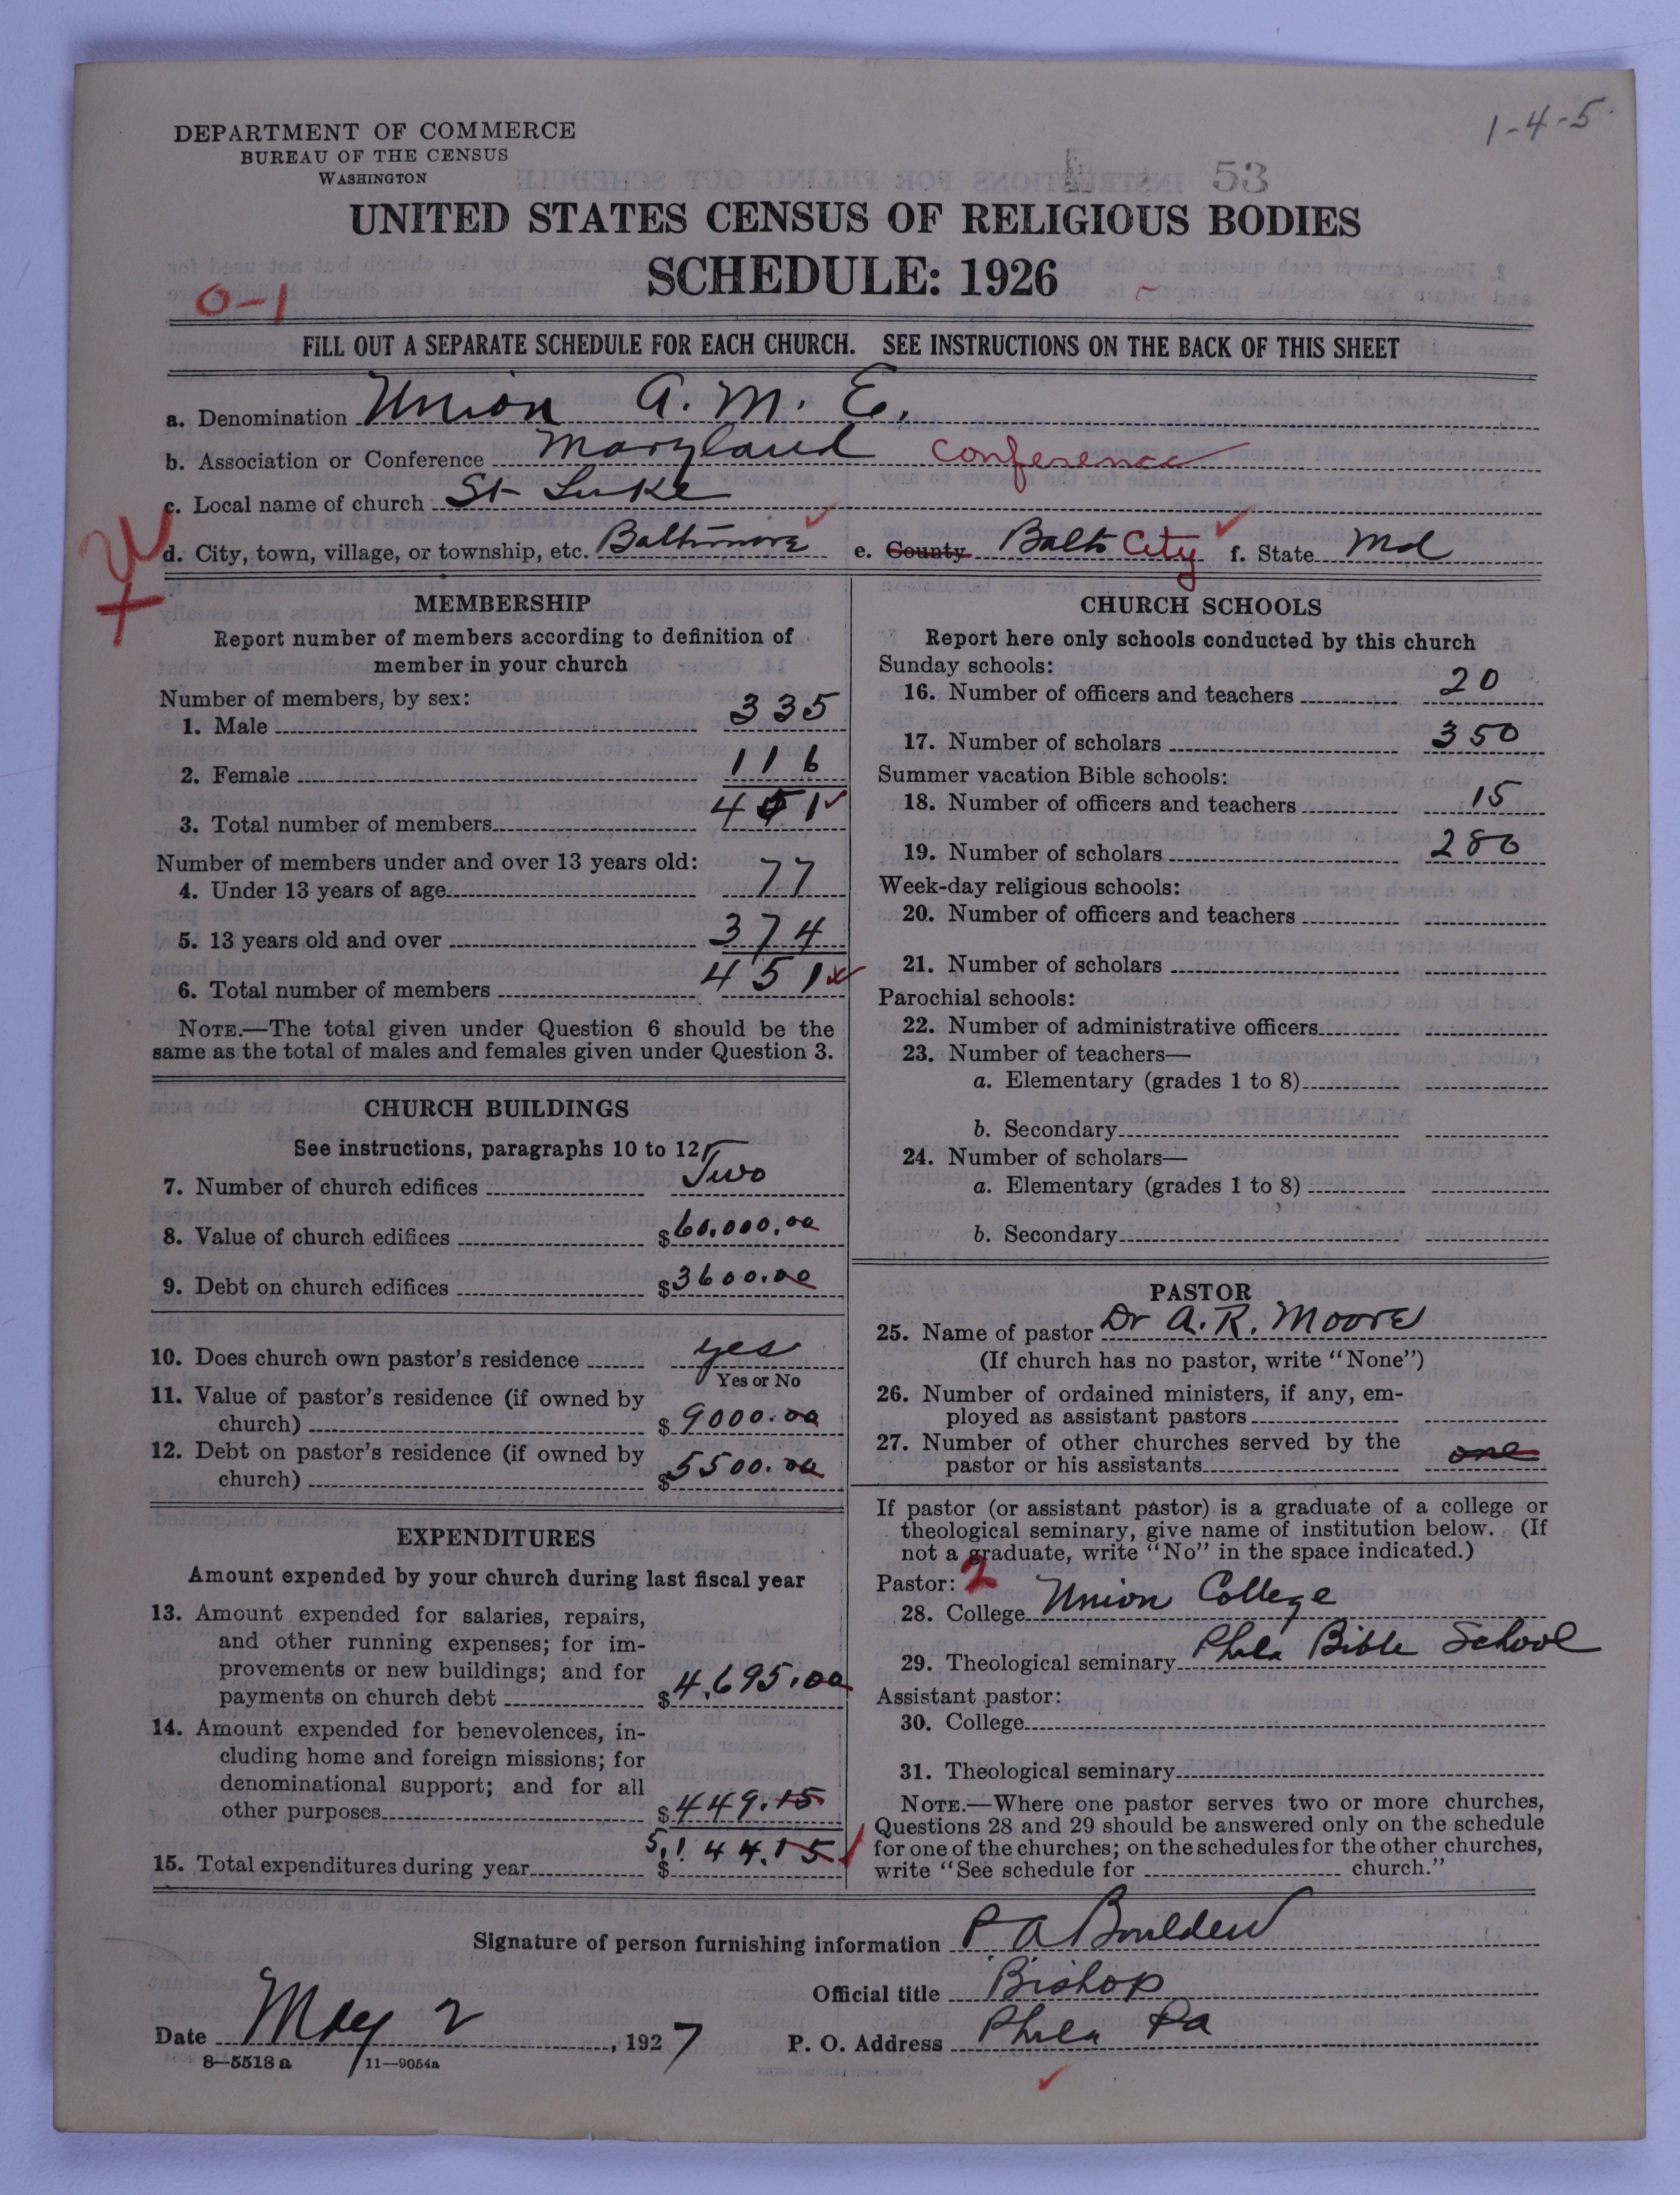 1-4-5
DEPARTMENT OF COMMERCE
BUREAU OF THE CENSUS
WASHINGTON
53
UNITED STATES CENSUS OF RELIGIOUS BODIES
SCHEDULE: 1926
0-1
FILL OUT A SEPARATE SCHEDULE FOR EACH CHURCH. SEE INSTRUCTIONS ON THE BACK OF THIS SHEET
a. Denomination Union A. M. E.
b. Association or Conference Maryland Conference
c. Local name of church St Luke
d. City, town, village, or township, etc. Baltimore e. County Balto City f. State Md
MEMBERSHIP
Report number of members according to definition of
member in your church
Number of members, by sex:
1. Male 335
2. Female 116
3. Total number of members 451
Number of members under and over 13 years old:
4. Under 13 years of age 77
5. 13 years old and over 374
6. Total number of members 451
NOTE.—The total given under Question 6 should be the
same as the total of males and females given under Question 3.
CHURCH BUILDINGS
See instructions, paragraphs 10 to 12
7. Number of church edifices Two
8. Value of church edifices $60,000.00
9. Debt on church edifices $3600.00
10. Does church own pastor's residence yes
Yes or No
11. Value of pastor's residence (if owned by
church) $9000.00
12. Debt on pastor's residence (if owned by
church) $5500.00
EXPENDITURES
Amount expended by your church during last fiscal year
13. Amount expended for salaries, repairs,
and other running expenses; for im-
provements or new buildings; and for
payments on church debt $4,695.00
14. Amount expended for benevolences, in-
cluding home and foreign missions; for
denominational support; and for all
other purposes $449.15
15. Total expenditures during year $5,144.15
CHURCH SCHOOLS
Report here only schools conducted by this church
Sunday schools:
16. Number of officers and teachers 20
17. Number of scholars 350
Summer vacation Bible schools:
18. Number of officers and teachers 15
19. Number of scholars 280
Week-day religious schools:
20. Number of officers and teachers
21. Number of scholars
Parochial schools:
22. Number of administrative officers
23. Number of teachers—
a. Elementary (grades 1 to 8)
b. Secondary
24. Number of scholars—
a. Elementary (grades 1 to 8)
b. Secondary
PASTOR
25. Name of pastor Dr A. R. Moore
(If church has no pastor, write "None")
26. Number of ordained ministers, if any, em-
ployed as assistant pastors
27. Number of other churches served by the
pastor or his assistants one
If pastor (or assistant pastor) is a graduate of a college or
theological seminary, give name of institution below. (If
not a graduate, write "No" in the space indicated.)
Pastor: 2
28. College Union College
29. Theological seminary Phila Bible School
Assistant pastor:
30. College
31. Theological seminary
NOTE.—Where one pastor serves two or more churches,
Questions 28 and 29 should be answered only on the schedule
for one of the churches; on the schedules for the other churches,
write "See schedule for church."
Signature of person furnishing information P. A Boulden
Official title Bishop
Date May 2, 1927 P. O. Address Phila Pa
8—5518 a 11—9054a